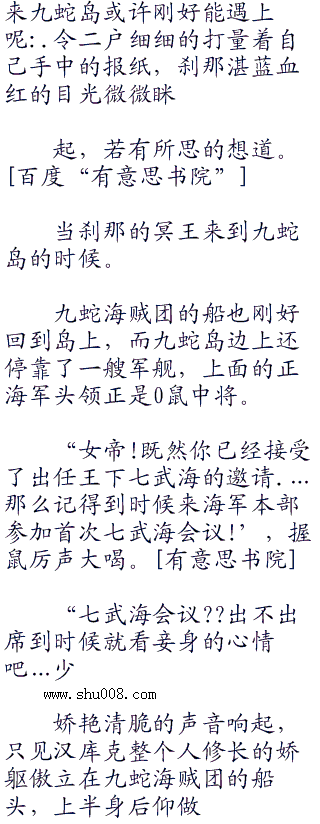 来九蛇岛或许刚好能遇上
呢:.令二户细细的打量着自
己手中的报纸，刹那湛蓝血
红的目光微微眯
起，若有所思的想道。
[百度“有意思书院”]
当刹那的冥王来到九蛇
岛的时候。
九蛇海贼团的船也刚好
回到岛上，而九蛇岛边上还
停靠了一艘军舰，上面的正
海军头领正是0鼠中将。
“女帝!既然你已经接受
了出任王下七武海的邀请....
那么记得到时候来海军本部
参加首次七武海会议!’，握
鼠厉声大喝。[有意思书院]
“七武海会议??出不出
席到时候就看妾身的心情
吧...少
www.shu008.com
娇艳清脆的声音响起，
只见汉库克整个人修长的娇
躯傲立在九蛇海贼团的船
头，上半身后仰做